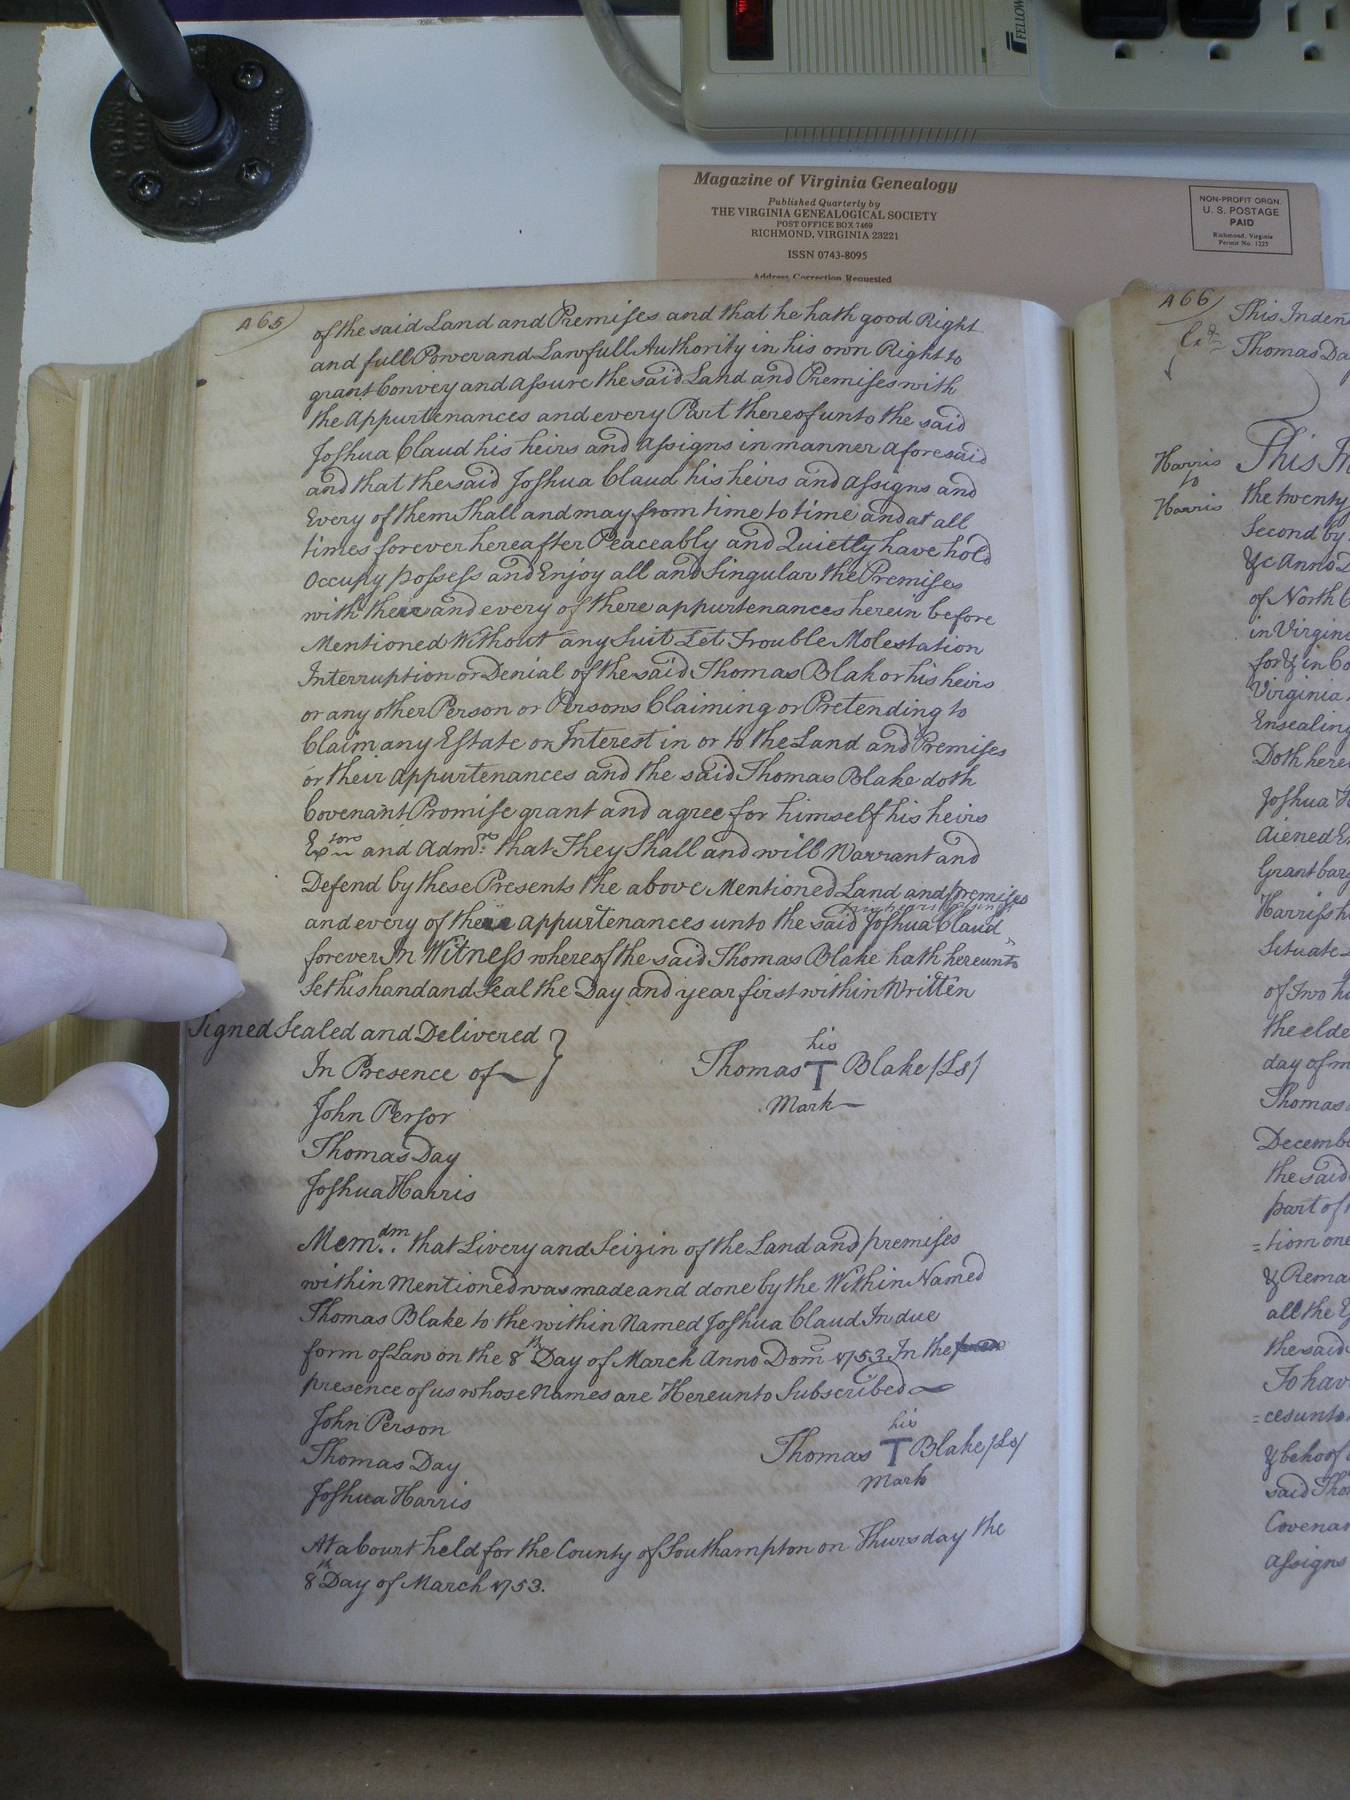 FELLOW
Magazine of Virginia Genealogy
Published Quarterly by
THE VIRGINIA GENEALOGICAL SOCIETY
POST OFFICE BOX 7469
RICHMOND, VIRGINIA 23221
ISSN 0743-8095
Address Correction Requested
NON-PROFIT ORGN.
U. S. POSTAGE
PAID
Richmond, Virginia
Permit No. 1225
465
of the said Land and Premises and that he hath good Right
and full Power and Lawfull Authority in his own Right to
grant Convey and Assure the said Land and Premises with
the Appurtenances and every Part thereof unto the said
Joshua Claud his heirs and Assigns in manner aforesaid
and that the said Joshua Claud his heirs and assigns and
Every of them Shall and may from time to time and at all
times forever hereafter Peaceably and Quietly have hold
Occupy possess and Enjoy all and Singular the Premises
with their and every of there appurtenances herein before
Mentioned Without any Suit Let Trouble Molestation
Interruption or Denial of the said Thomas Blak or his heirs
or any other Person or Persons Claiming or Pretending to
Claim any Estate or Interest in or to the Land and Premises
or their Appurtenances and the said Thomas Blake doth
Covenant Promise grant and agree for himself his heirs
Extors and Admrs that They Shall and will Warrant and
Defend by these Presents the above Mentioned Land and premises
and every of their appurtenances unto the said Joshua Claud
forever In Witness whereof the said Thomas Blake hath hereunto
Set his hand and Seal the Day and year first within Written
Signed Sealed and Delivered
In Presence of
his
Thomas T Blake (Ls)
Mark
John Persor
Thomas Day
Joshua Harris
Memdm. that Livery and Seizin of the Land and premises
within Mentioned was made and done by the Within Named
Thomas Blake to the within Named Joshua Claud In due
form of Law on the 8th Day of March Anno Dom 1753 In the
presence of us whose Names are Hereunto Subscribed
John Person
Thomas Day
Joshua Harris
his
Thomas T Blake (Ls)
Mark
At a Court held for the County of Southampton on Thursday the
8th Day of March 1753.
466
This Inden
Thomas Da
Harris
to
Harris
This In
the twenty
Second by
&c Anno D
of North C
in Virgini
for & in Co
Virginia
Ensealing
Doth here
Joshua H
Aiened En
Grant barg
Harris h
Situate
of Two h
the elde
day of m
Thomas
Decemb
the said
part of
=tion one
& Rema
all the E
the said
To hav
=ces unto
& behoof
said Tho
Covenan
Assigns